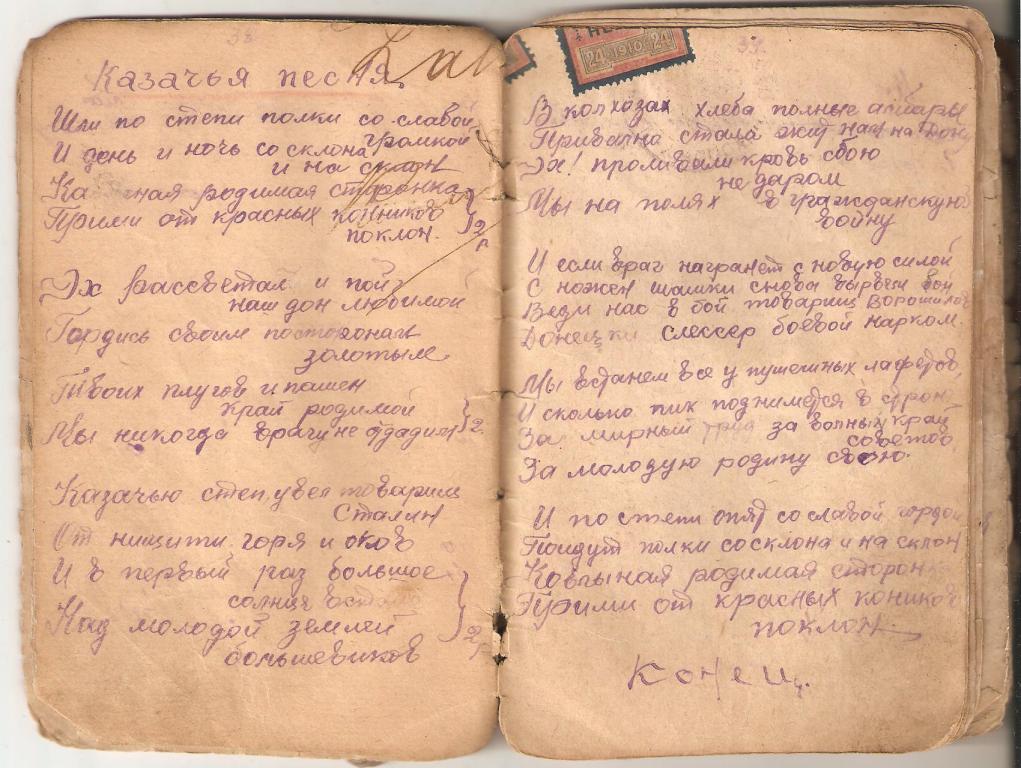 38
Казачья песня.
Шли по степи полки со славой
громкой
И день и ночь со склона
и на склон
родимая сторонка
Прими от красных конников
поклон. 2 р
Эх рассветай и пой
наш дон любимой
Гордись своим
золотыле
Твоих плугов и пашен
край родимой
Мы никогда врагу не отдадим 2
Казачью степ увел товарищ
Сталин
От нищити горя и оков
И в первый раз большое
солнце
Над молодой землей
большевиков 2 р
24 1910 24
В колхозах хлеба полные амбары
Привално стала жит нам на Дону
Эх! проливали кровь свою
не даром
Мы на полях в гражданскую
войну
И если враг награнет с новую силой
С ножен шашки снова вырвем
Веди нас в бой товарищ Ворошилов
Донецки слессер боевой нарком.
Мы встанем все у пушешных лафетов,
И сколько пик поднимется в строю
За мирный труд за волных край
советов
За молодую родину свою.
И по степи опят со славой гордой
Поидут полки со склона и на склон
Ковыная родимая сторонка
Прими от красных коников
поклон.
Конец.